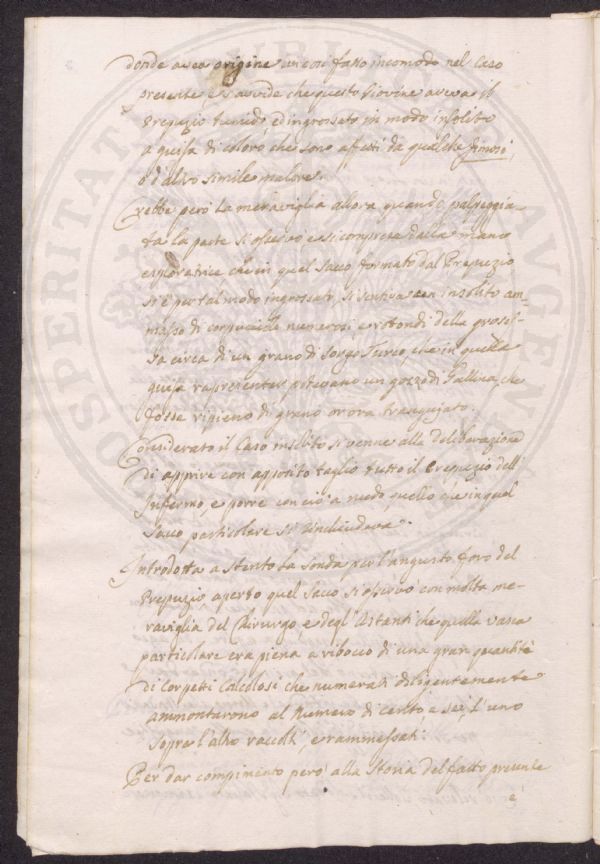 donde avea origine un così fatto incomodo nel Caso
presente e s'avvide che questo Giovine aveva il
Prepuzio tumido, ed ingrossato in modo insolito
a guisa di coloro che sono afetti da qualche fimosi,
o d'altro simile malore.
Crebbe però la meraviglia allora quando palpeggia-
ta la parte si osservò e si comprese dalla mano
esploratrice che in quel Sacco formato dal Prepuzio
si e per tal modo ingrossato si sentiva un insolito am-
masso di corpicciuoli numerosi e rotondi della grosez-
za circa di un grano di Sorgo Turco, che in quella
guisa rapresentar potevano un gozzo di Gallina, che
fosse ripieno di grano or ora trangujato.
Considerato il Caso insolito si venne alla deliberazione
di apprire con apposito taglio tutto il Prepuzio dell'
Infermo, e porre con ciò a nudo quello che in quel
Sacco particolare si rinchiudeva.
Introdotta a stento la Sonda per l'angusto foro del
Prepuzio, aperto quel Sacco si osservò con molta me-
raviglia del Chirurgo, e degl'Astanti che quella vasca
particolare era piena a ribocco di una gran quantità
di Corpetti Calcolosi che numerati diligentemente
ammontarono al Numero di cento, e sei, l'uno
sopra l'altro raccolti, e rammassati.
Per dar compimento però alla Storia del fatto presente
è
PROSPERITATI PUBLICAE AUGENDAE